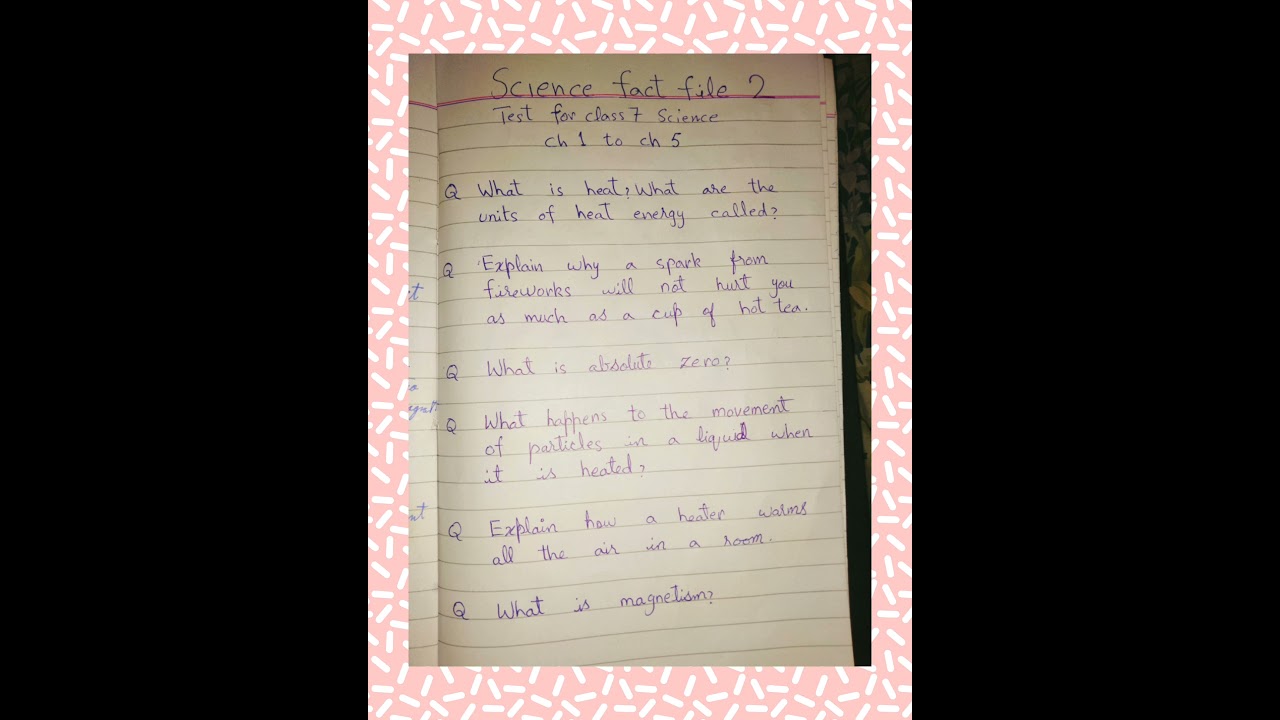 Science fact file 2
Test for class 7 Science
ch 1 to ch 5
Q What is heat? What are the
units of heat energy called?
Q Explain why a spark from
fireworks will not hurt you
as much as a cup of hot tea.
Q What is absolute zero?
Q What happens to the movement
of particles in a liquid when
it is heated?
Q Explain how a heater warms
all the air in a room.
Q What is magnetism?